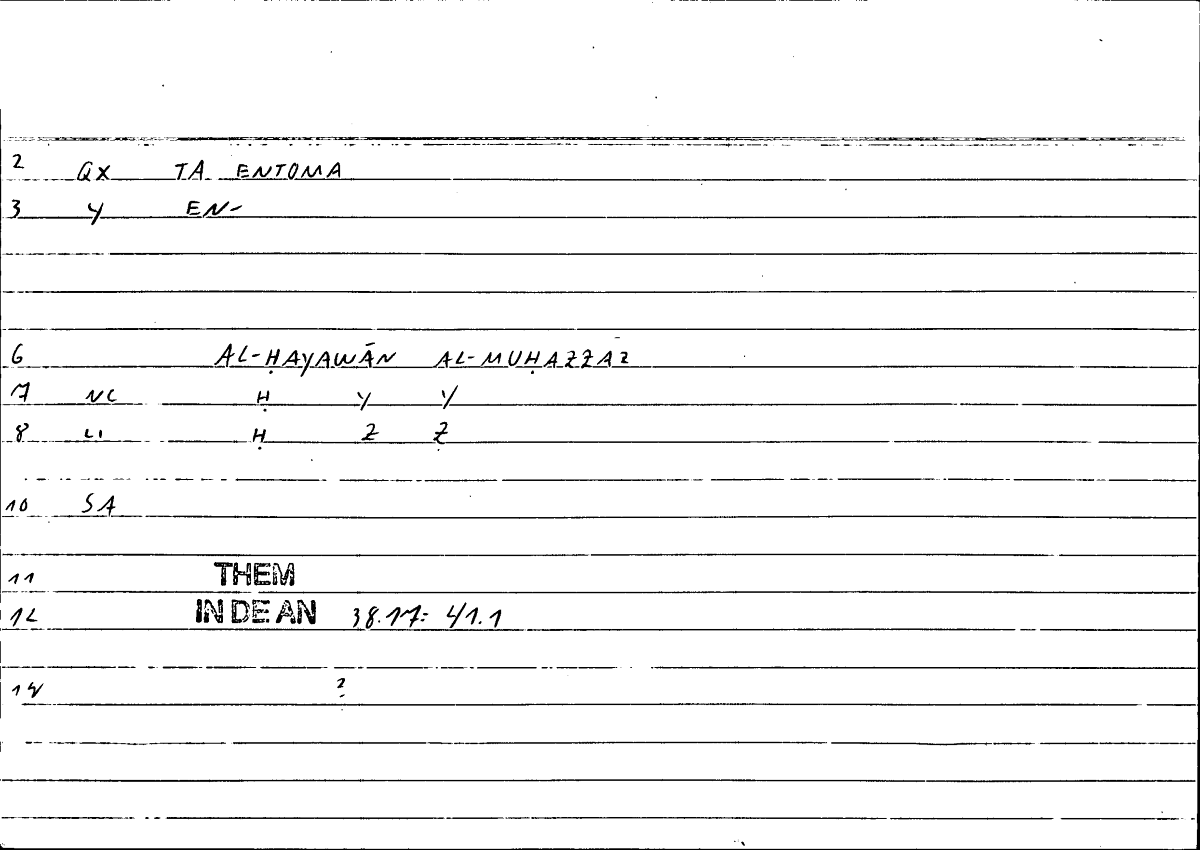 2 QX TA ENTOMA
3 Y EN-
6 AL-ḤAYAWĀN AL-MUḤAZZAZ
7 NC Ḥ Y Y
8 LI Ḥ Z Z
10 SA
11 THEM
12 IN DE AN 38.17: 41.1
14 ?